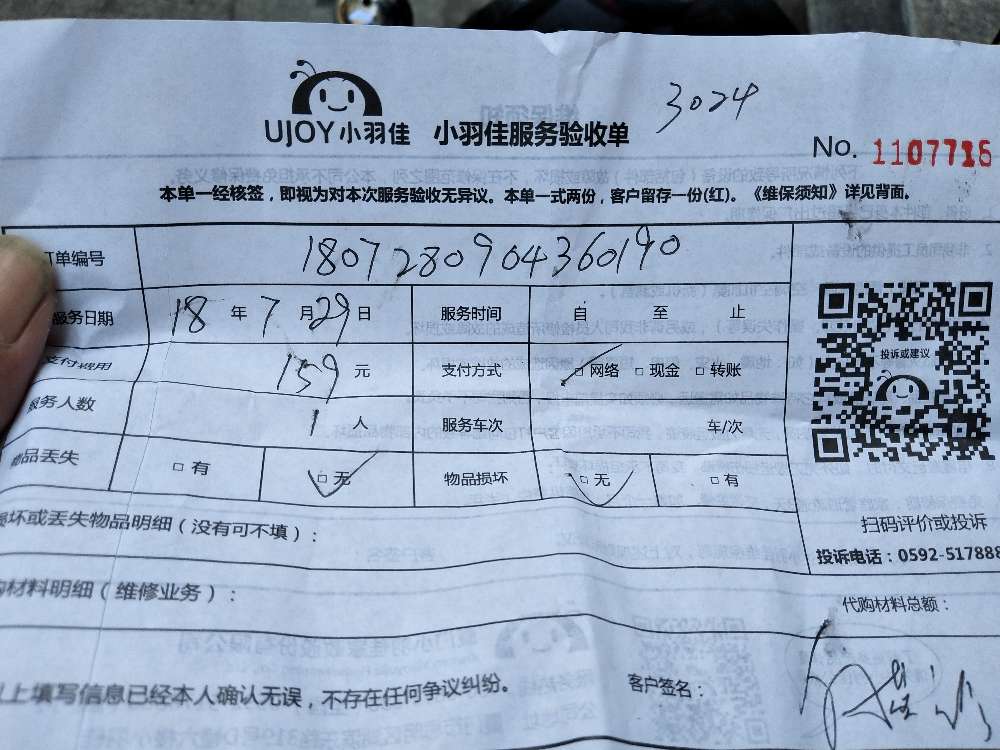 3024
UJOY小羽佳 小羽佳服务验收单
No. 1107715
本单一经核签，即视为对本次服务验收无异议。本单一式两份，客户留存一份(红)。《维保须知》详见背面。
订单编号 1807280904360190
服务日期 18 年 7 月 29 日 服务时间 自 至 止
支付费用 159 元 支付方式 ☑网络 □现金 □转账
服务人数 1 人 服务车次 车/次
物品丢失 □有 ☑无 物品损坏 ☑无 □有
投诉或建议
扫码评价或投诉
投诉电话：0592-517888
损坏或丢失物品明细（没有可不填）：
购材料明细（维修业务）：
代购材料总额：
以上填写信息已经本人确认无误，不存在任何争议纠纷。
客户签名：